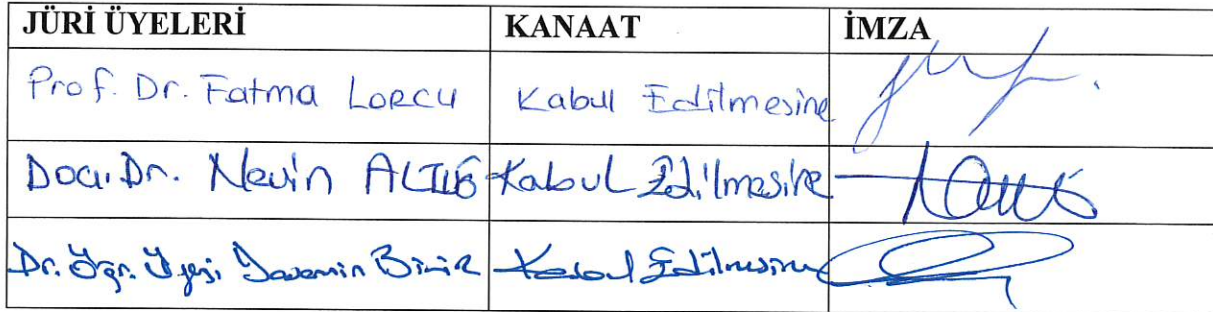 JÜRİ ÜYELERİ KANAAT İMZA
Prof. Dr. Fatma LORCU Kabul Edilmesine
Doç. Dr. Nevin ALTUĞ Kabul Edilmesine
Dr. Öğr. Üyesi Kabul Edilmesine